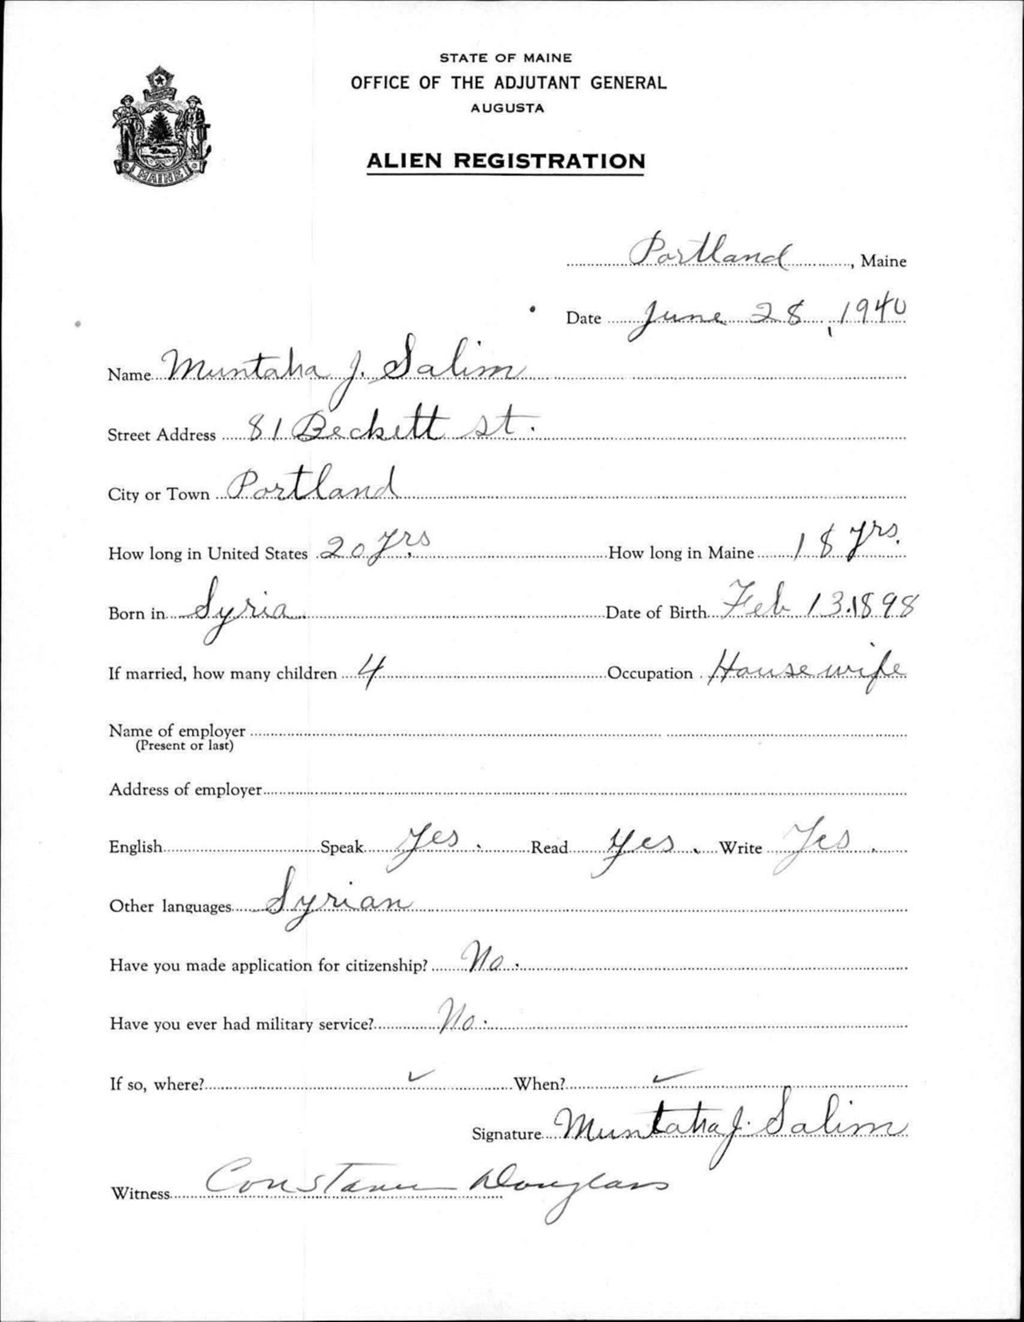 STATE OF MAINE
OFFICE OF THE ADJUTANT GENERAL
AUGUSTA
ALIEN REGISTRATION
MAINE
Portland, Maine
Date June 28, 1940
Name Muntaha J. Salim
Street Address 81 Beckett st.
City or Town Portland
How long in United States 20 yrs How long in Maine 18 yrs.
Born in Syria Date of Birth Feb 13.1898
If married, how many children 4 Occupation Housewife
Name of employer
(Present or last)
Address of employer
English Speak Yes. Read Yes. Write Yes.
Other languages Syrian
Have you made application for citizenship? No.
Have you ever had military service? No.
If so, where? ✓ When? ✓
Signature Muntaha J. Salim
Witness Constance Douglass